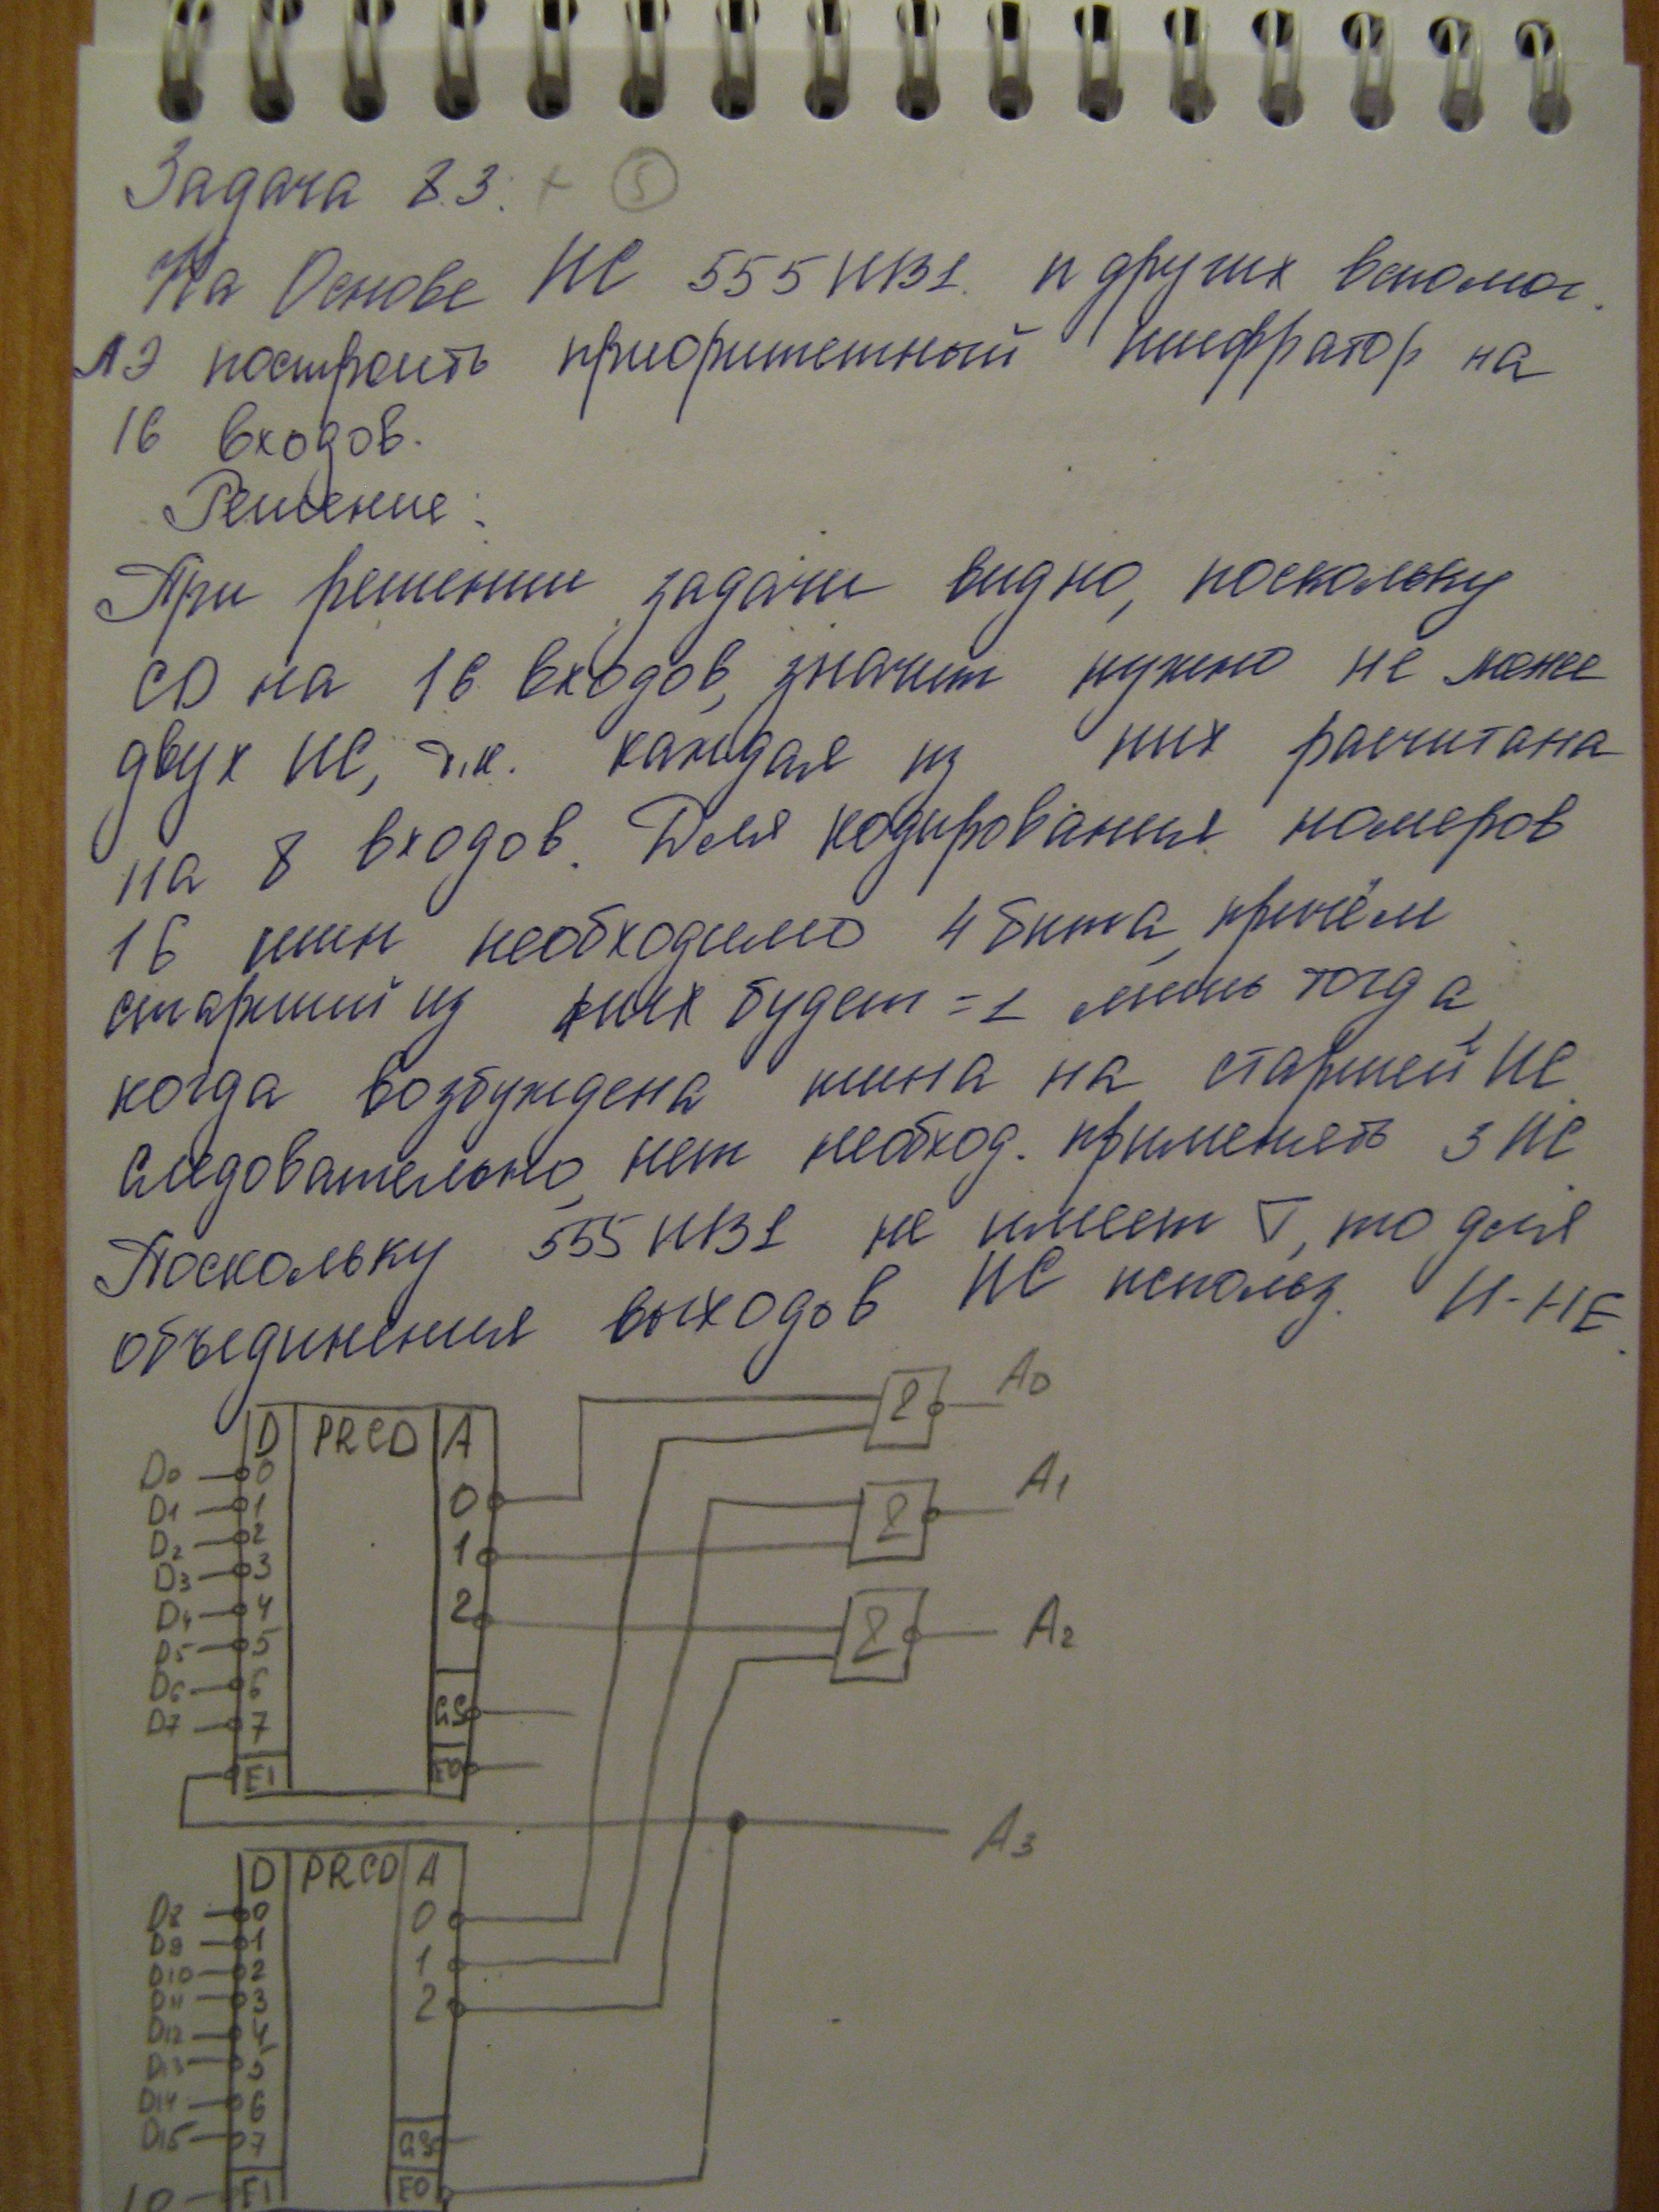 Задача 8.3: + 5
На Основе ИС 555ИВ1. и других вспомог.
ЛЭ построить приоритетный шифратор на
16 входов.
Решение:
При решении задачи видно, поскольку
CD на 16 входов, значит нужно не менее
двух ИС, т.к. каждая из них расчитана
на 8 входов. Для кодирования номеров
16 шин необходимо 4 бита, причём
старший из них будет =1 лишь тогда,
когда возбуждена шина на старшей ИС.
Следовательно, нет необход. применять 3 ИС.
Поскольку 555ИВ1 не имеет ▽, то для
объединения выходов ИС использ. И-НЕ.
D PRCD A
D0 0
D1 1
D2 2
D3 3
D4 4
D5 5
D6 6
D7 7
EI
0
1
2
GS
E0
& A0
& A1
& A2
A3
D PRCD A
D8 0
D9 1
D10 2
D11 3
D12 4
D13 5
D14 6
D15 7
EI
0
1
2
GS
E0